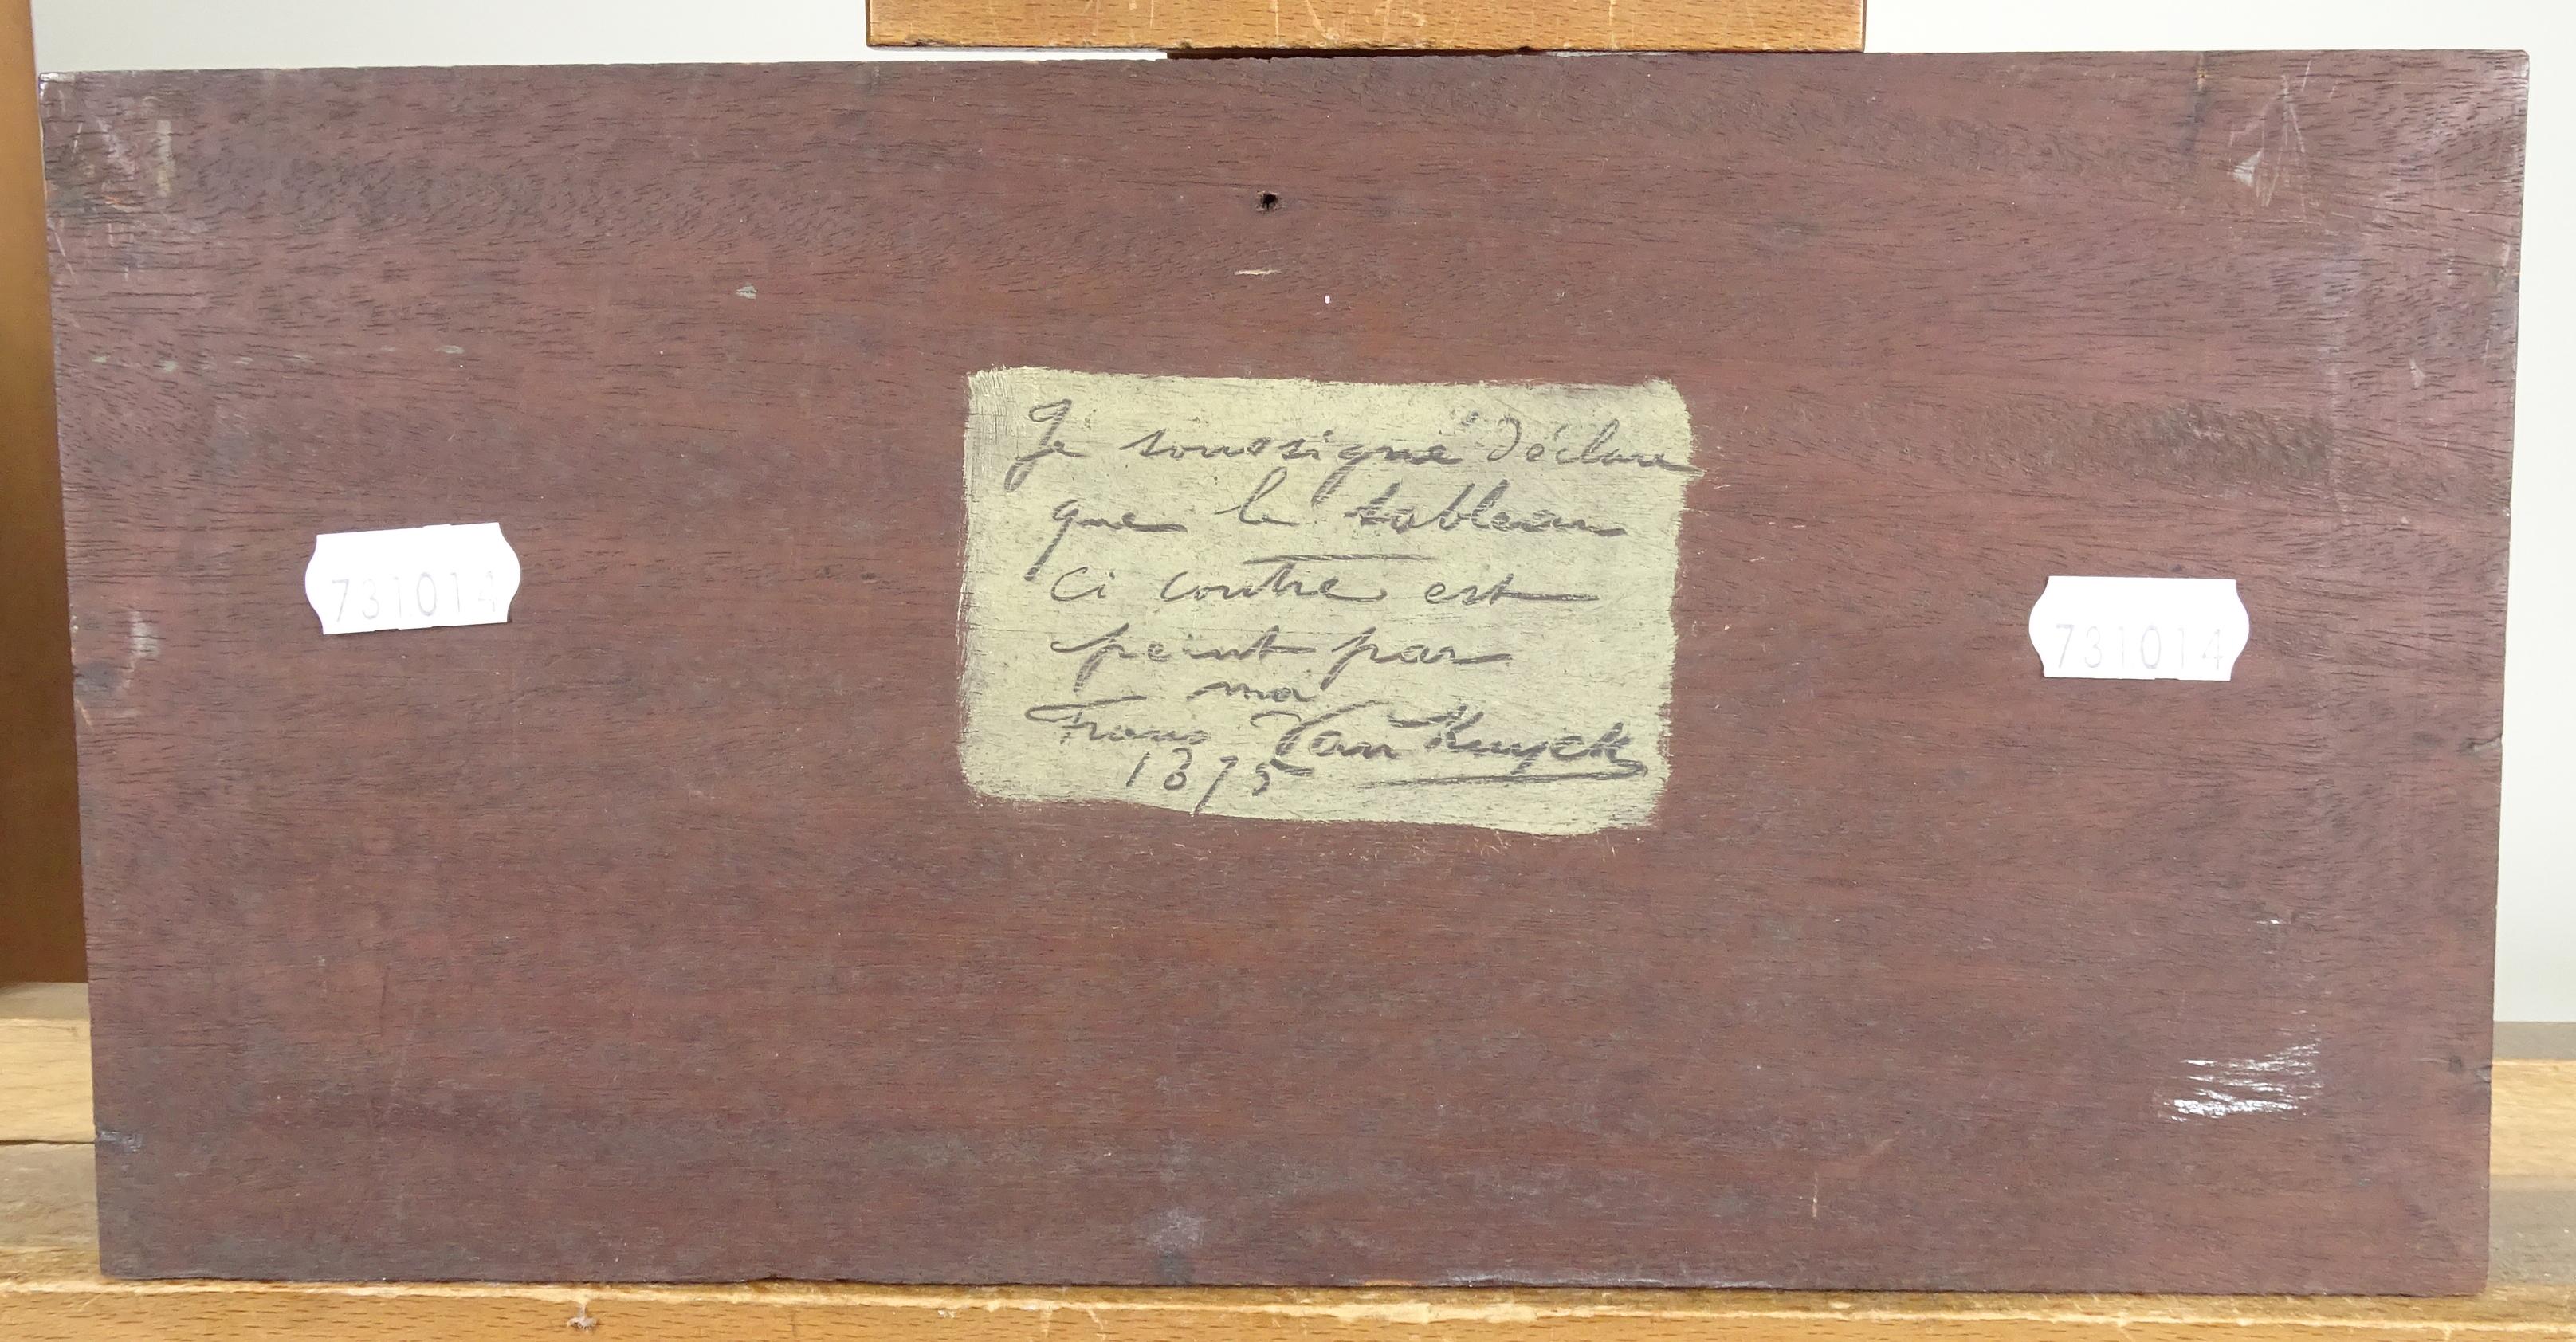 Je soussigné déclare
que le tableau
ci contre est
peint par
moi
Frans Van Kuyck
1875
731014
731014